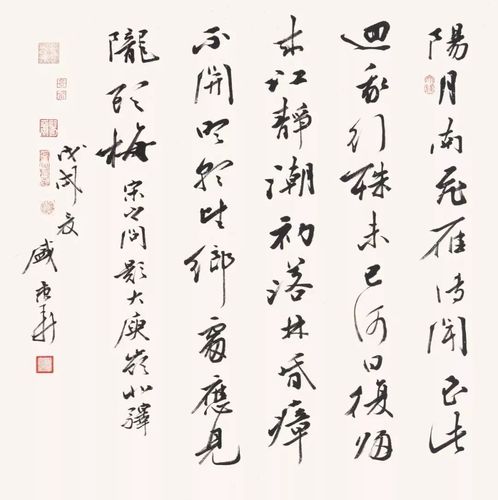 陽月南飛雁傳聞至此
迴我行殊未已何日復歸
來江靜潮初落林昏瘴
不開明朝望鄉處應見
隴頭梅 宋之問題大庾嶺北驛
戊戌夏
盛